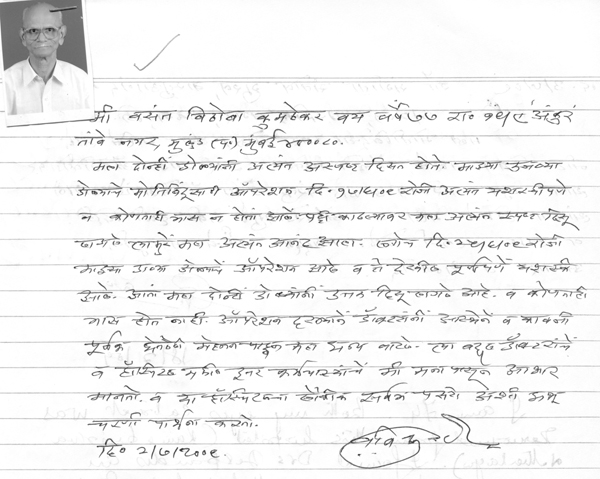 मी वसंत विठोबा कुमठेकर वय वर्षे ७७ रा. १५/९ अंकुर
तांबे नगर, मुलुंड (प.) मुंबई ४०००८०.
मला दोन्हीं डोळ्यांनी अत्यंत अस्पष्ट दिसत होते. माझ्या उजव्या
डोळ्याचे मोतिबिंदूसाठी ऑपरेशन दि. १७/५/०९ रोजी अत्यंत यशस्वीपणे
व कोणताही त्रास न होता झाले. पट्टी काढल्यावर मला अत्यंत स्पष्ट दिसू
लागले त्यामुळे मला अत्यंत आनंद झाला. लगेच दि. २५/५/०९ रोजी
माझ्या डाव्या डोळ्याचे ऑपरेशन झाले व ते देखील पूर्णपणे यशस्वी
झाले. आता मला दोन्ही डोळ्यांनी उत्तम दिसू लागले आहे. व कोणताही
त्रास होत नाही. ऑपरेशन दरम्यान डॉक्टरांनी आस्थेने व काळजी
पूर्वक घेतलेली मेहनत पाहून मला धन्य वाटले. त्या बद्दल डॉक्टरांचे
व हॉस्पिटल मधील इतर कर्मचाऱ्यांचे मी मनापासून आभार
मानतो. व या हॉस्पिटलचा लौकिक सर्वत्र पसरो अशी प्रभू
चरणी प्रार्थना करतो.
दि० २/७/२००९